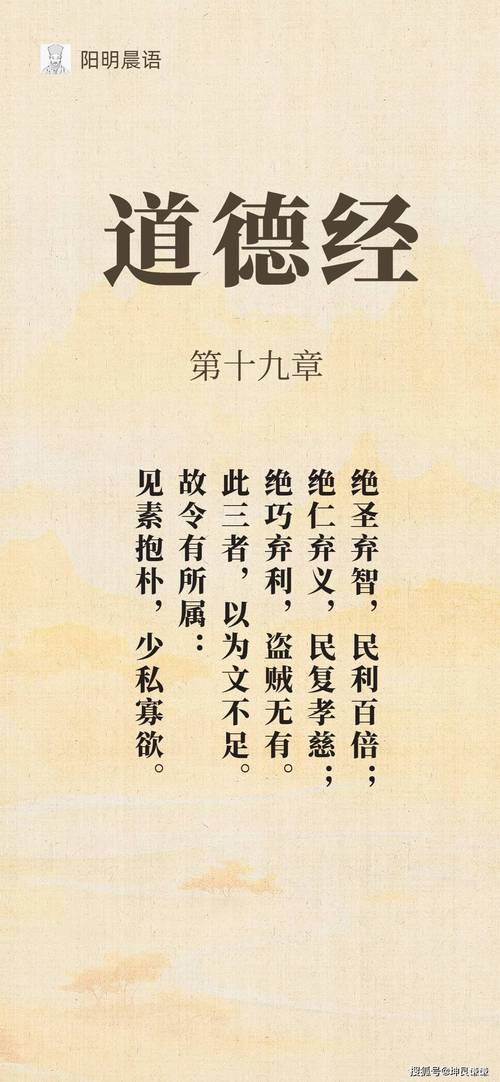 阳明晨语
道德经
第十九章
绝圣弃智，民利百倍；
绝仁弃义，民复孝慈；
绝巧弃利，盗贼无有。
此三者，以为文不足。
故令有所属：
见素抱朴，少私寡欲。
搜狐号@坤良谦谦